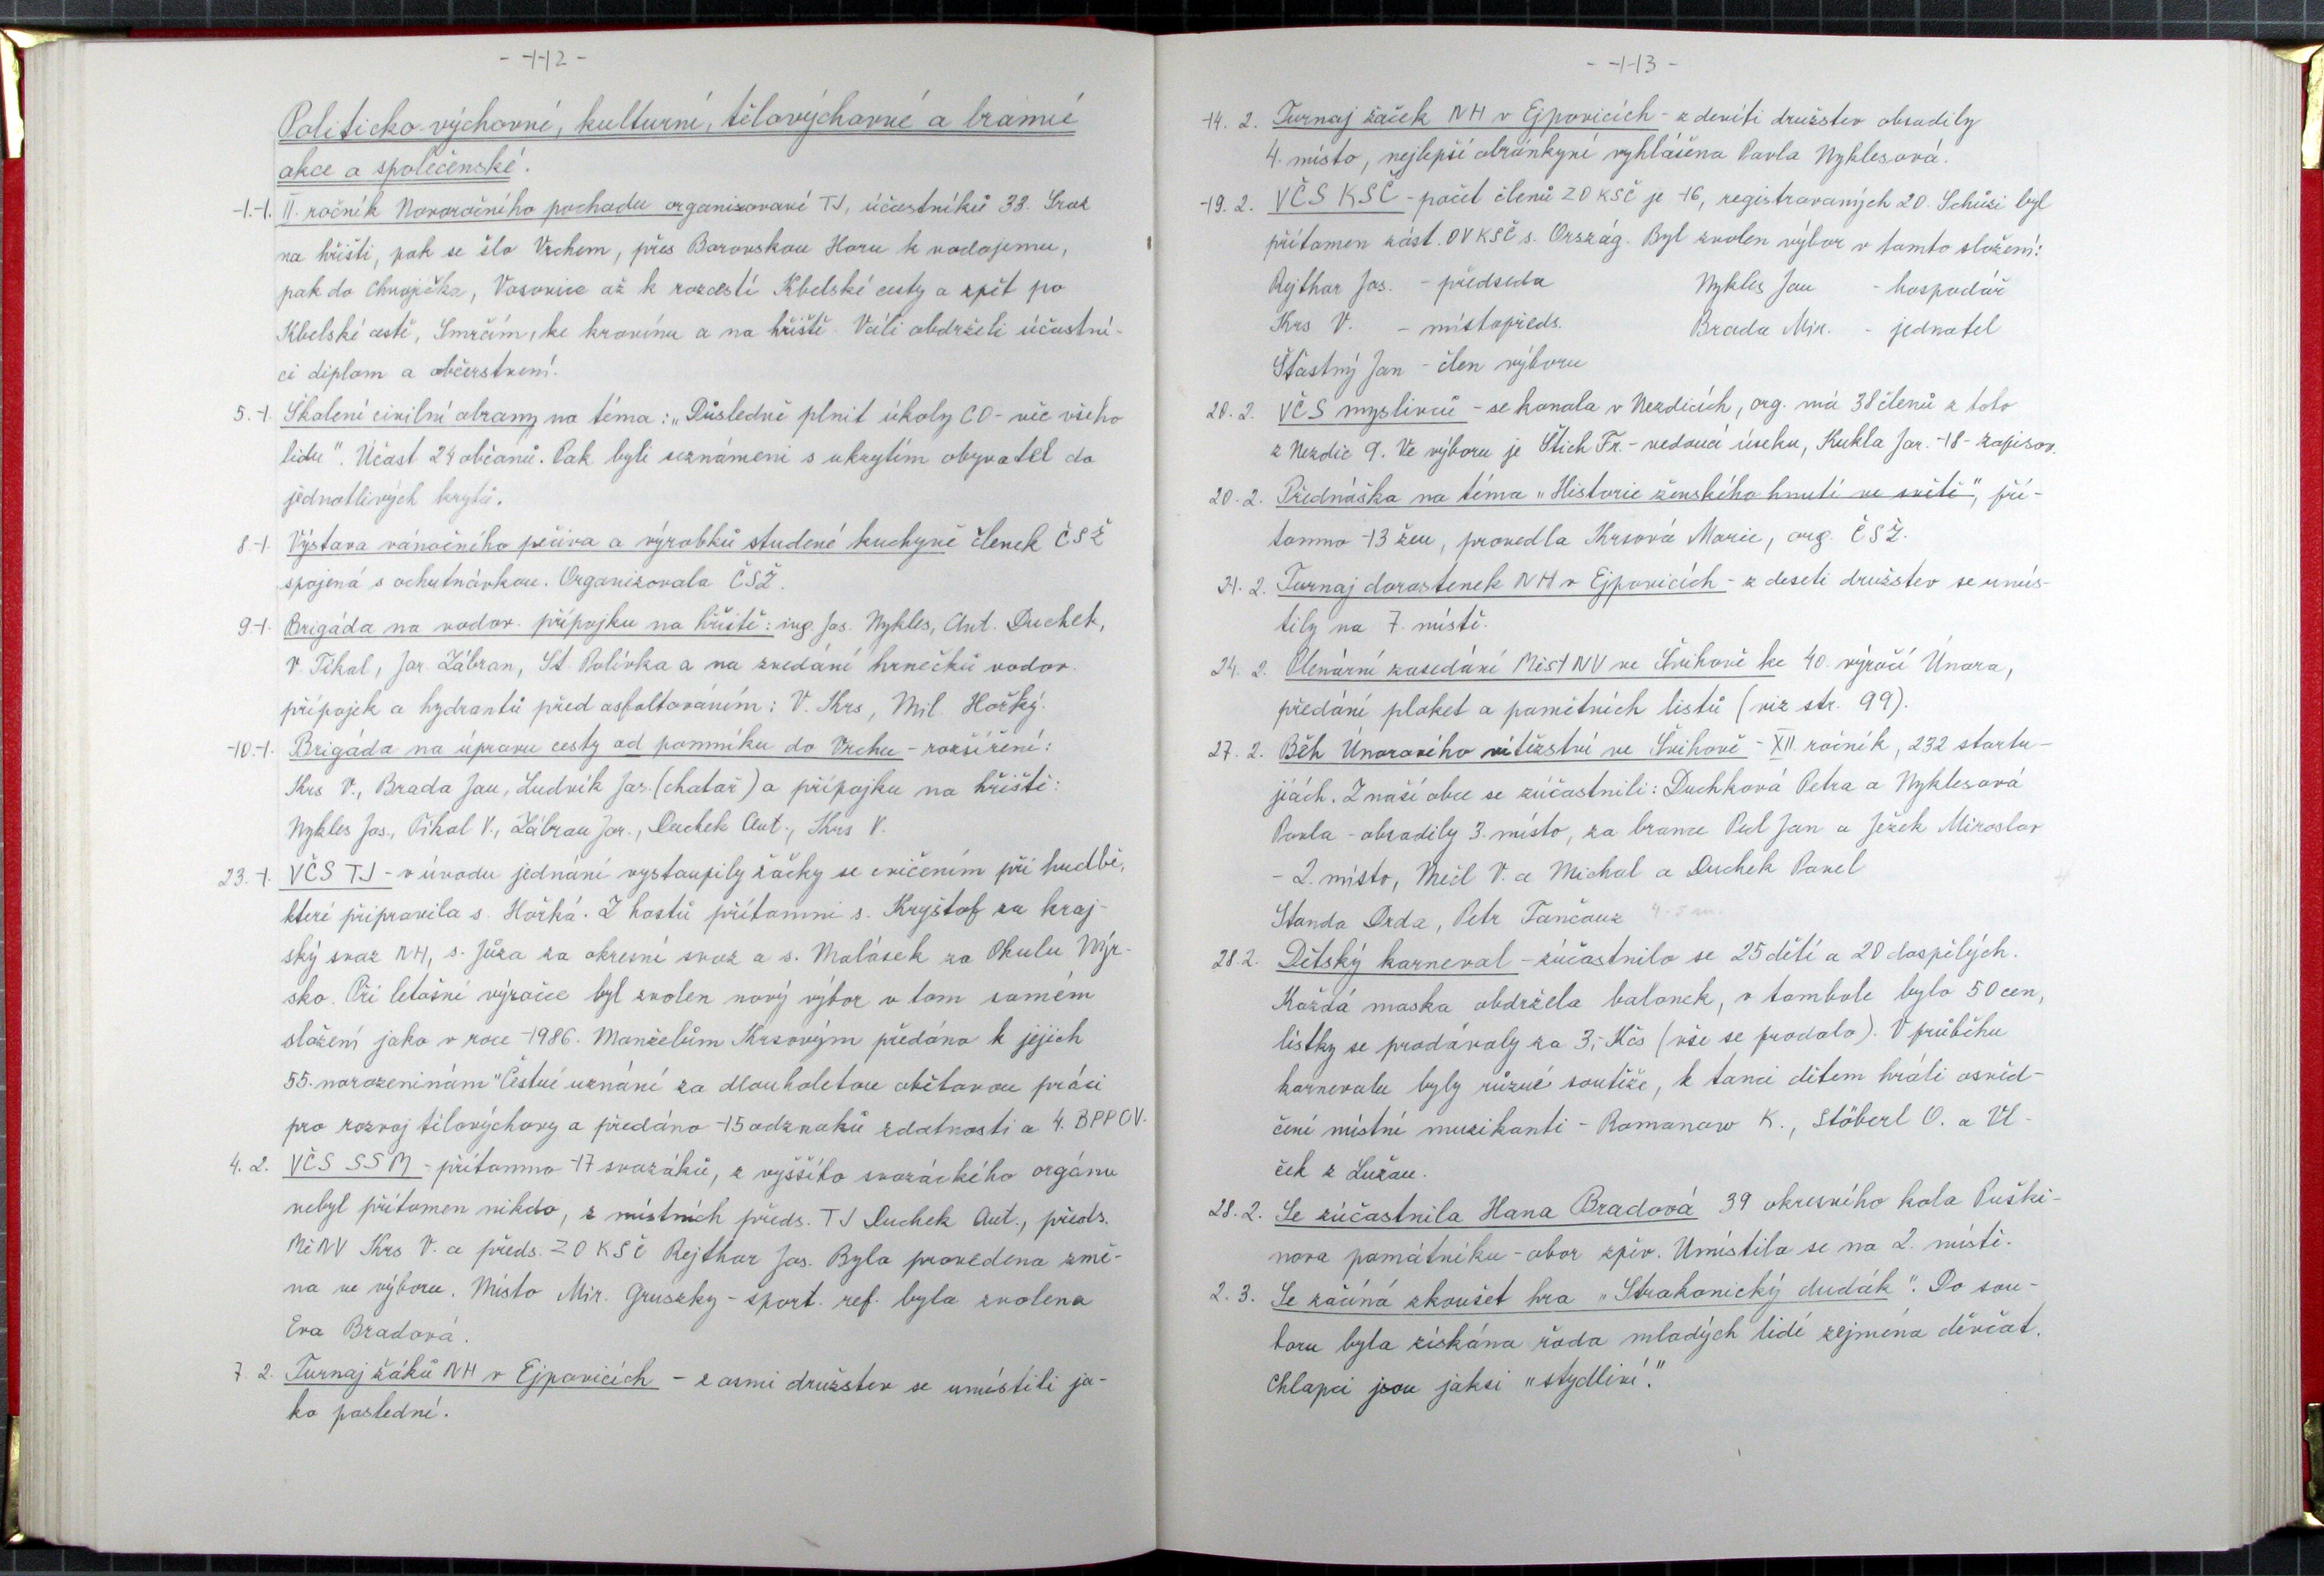 - 112 -
Politicko-výchovné, kulturní, tělovýchovné a branné
akce a společenské.
1.1. II. ročník Novoročního pochodu organisované TJ, účastníků 33. Sraz
na hřišti, pak se šlo Vrchem, přes Borovskou Horu k vodojemu,
pak do Chvojčka, Vosovice až k rozcestí Kbelské cesty a zpět po
Kbelské cestě, Smrčím, ke kravínu a na hřiště. Váli obdrželi účastní-
ci diplom a občerstvení.
5.1. Školení civilní obrany na téma: „Důsledně plnit úkoly CO - věc všeho
lidu". Účast 24 občanů. Pak byli seznámeni s ukrytím obyvatel do
jednotlivých krytů.
8.1. Výstava vánočního pečiva a výrobků studené kuchyně členek ČSŽ
spojená s ochutnávkou. Organizovala ČSŽ.
9.1. Brigáda na vodov. přípojku na hřiště: ing. Jos. Nykles, Ant. Duchek,
V. Pikal, Jar. Zábran, St. Polívka a na zvedání hrnečků vodov.
přípojek a hydrantů před asfaltováním: V. Krs, Mil. Hořký.
10.1. Brigáda na úpravu cesty od pomníku do Vrchu - rozšíření:
Krs V., Brada Jan, Ludvík Jar. (chatař) a přípojku na hřiště:
Nykles Jos., Pikal V., Zábran Jar., Duchek Ant., Krs V.
23.1. VČS TJ - v úvodu jednání vystoupily žačky se cvičením při hudbě,
které připravila s. Hořká. Z hostů přítomni s. Kryštof za kraj-
ský svaz NH, s. Jůza za okresní svaz a s. Malásek za Okulu Nýr-
sko. Při letošní výročce byl zvolen nový výbor v tom samém
složení jako v roce 1986. Manželům Krsovým předáno k jejich
55. narozeninám "Čestné uznání za dlouholetou obětavou práci
pro rozvoj tělovýchovy a předáno 15 odznaků zdatnosti a 4. BPPOV.
4. 2. VČS SSM - přítomno 17 svazáků, z vyššího svazáckého orgánu
nebyl přítomen nikdo, z místních předs. TJ Duchek Ant., předs.
MěNV Krs V. a předs. ZO KSČ Rejthar Jos. Byla provedena změ-
na ve výboru. Místo Mir. Gruszky - sport. ref. byla zvolena
Eva Bradová.
7. 2. Turnaj žáků NH v Ejpovicích - z osmi družstev se umístili ja-
ko poslední.
- 113 -
14. 2. Turnaj žaček NH v Ejpovicích - z devíti družstev obsadily
4. místo, nejlepší obránkyní vyhlášena Pavla Nyklesová.
19. 2. VČS KSČ - počet členů ZO KSČ je 16, registrovaných 20. Schůzi byl
přítomen zást. OV KSČ s.Ország. Byl zvolen výbor v tomto složení:
Rejthar Jos. - předseda Nykles Jan - hospodář
Krs V. - místopředs. Brada Mir. - jednatel
Šťastný Jan - člen výboru
20. 2. VČS myslivců - se konala v Nezdicích, org. má 38 členů z toho
z Nezdic 9. Ve výboru je Štich Fr. - vedoucí úseku, Kukla Jar. -18- zapisov.
20. 2. Přednáška na téma „Historie ženského hnutí ve světě", pří-
tomno 13 žen, provedla Krsová Marie, org. ČSŽ.
21. 2. Turnaj dorostenek NH v Ejpovicích - z deseti družstev se umís-
tily na 7. místě.
24. 2. Plenární zasedání MístNV ve Švihově ke 40. výročí Února,
předání plaket a pamětních listů (viz str. 99).
27. 2. Běh Únorového vítězství ve Švihově - XII. ročník, 232 startu-
jících. Z naší obce se zúčastnili: Duchková Petra a Nyklesová
Pavla - obsadily 3. místo, za brance Pucl Jan a Ježek Miroslav
- 2. místo, Mečl V. a Michal a Duchek Pavel
Standa Drda, Petr Tančouz
28. 2. Dětský karneval - zúčastnilo se 25 dětí a 20 dospělých.
Každá maska obdržela balonek, v tombole bylo 50 cen,
lístky se prodávaly za 3,- Kčs (vše se prodalo). V průběhu
karnevalu byly různé soutěže, k tanci dětem hráli osvěd-
čení místní muzikanti - Romanow K., Stöberl O. a Vl-
ček z Lužan.
28. 2. Se zúčastnila Hana Bradová 39 okresního kola Puški-
nova památníku - obor zpěv. Umístila se na 2. místě.
2. 3. Se začíná zkoušet hra „Strakonický dudák". Do sou-
boru byla získána řada mladých lidí zejména děvčat.
Chlapci jsou jaksi „stydliví."